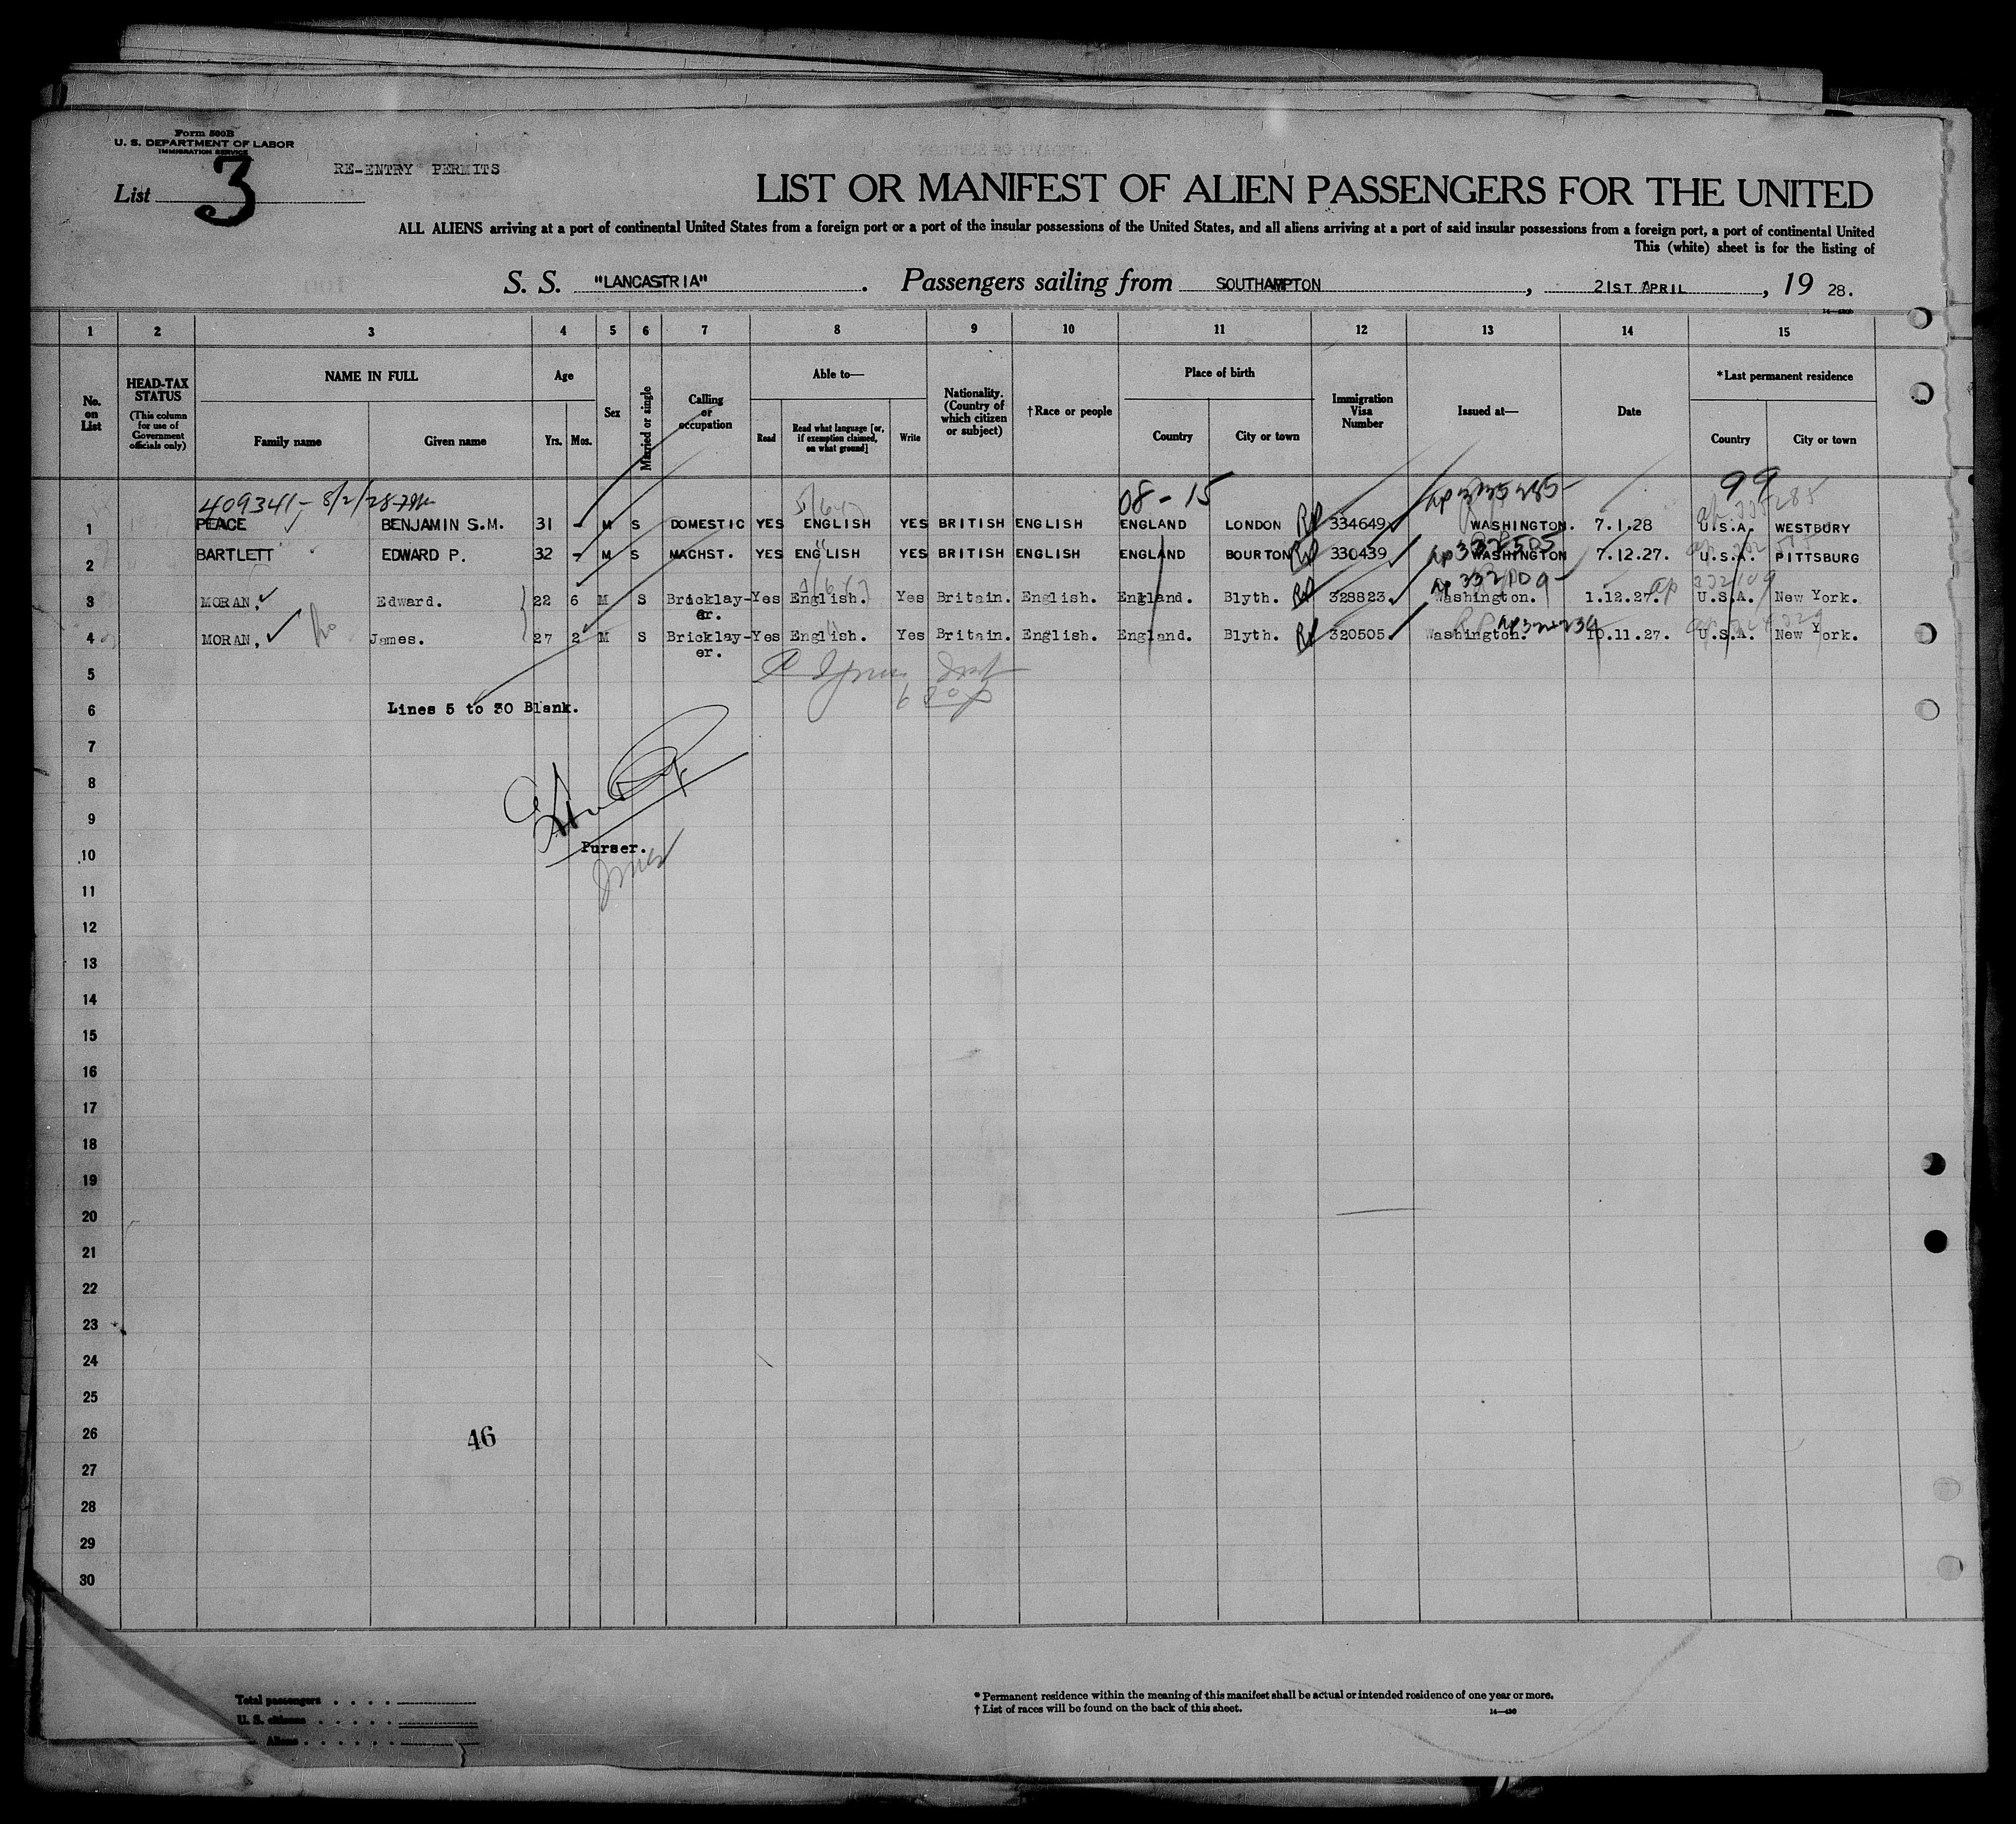 Form 500B
U. S. DEPARTMENT OF LABOR
IMMIGRATION SERVICE
RE-ENTRY PERMITS
List 3
LIST OR MANIFEST OF ALIEN PASSENGERS FOR THE UNITED
ALL ALIENS arriving at a port of continental United States from a foreign port or a port of the insular possessions of the United States, and all aliens arriving at a port of said insular possessions from a foreign port, a port of continental United
This (white) sheet is for the listing of
S. S. "LANCASTRIA". Passengers sailing from SOUTHAMPTON, 21ST APRIL, 19 28.
1 2 3 4 5 6 7 8 9 10 11 12 13 14 15
No. on List
HEAD-TAX STATUS (This column for use of Government officials only)
NAME IN FULL
Family name Given name
Age
Yrs. Mos.
Sex
Married or single
Calling or occupation
Able to—
Read
Read what language [or, if exemption claimed, on what ground]
Write
Nationality. (Country of which citizen or subject)
†Race or people
Place of birth
Country City or town
Immigration Visa Number
Issued at—
Date
*Last permanent residence
Country City or town
409341- 8/2/28 08-15 99
1 PEACE BENJAMIN S.M. 31 - M S DOMESTIC YES ENGLISH YES BRITISH ENGLISH ENGLAND LONDON RP 334649 WASHINGTON. 7.1.28 U.S.A. WESTBURY
2 BARTLETT EDWARD P. 32 - M S MACHST. YES ENGLISH YES BRITISH ENGLISH ENGLAND BOURTON RP 330439 WASHINGTON 7.12.27. U.S.A. PITTSBURG
ap 332109
3 MORAN, Edward. 22 6 M S Bricklay-er. Yes English. Yes Britain. English. England. Blyth. RP 328823. Washington. 1.12.27. U.S.A. New York.
4 MORAN, James. 27 2 M S Bricklay-er. Yes English. Yes Britain. English. England. Blyth. RP 320505. Washington. 10.11.27. U.S.A. New York.
5
6 Lines 5 to 30 Blank.
7
8
9
10 Purser.
11
12
13
14
15
16
17
18
19
20
21
22
23
24
25
26 46
27
28
29
30
Total passengers
U. S. citizens
Aliens
* Permanent residence within the meaning of this manifest shall be actual or intended residence of one year or more.
† List of races will be found on the back of this sheet.